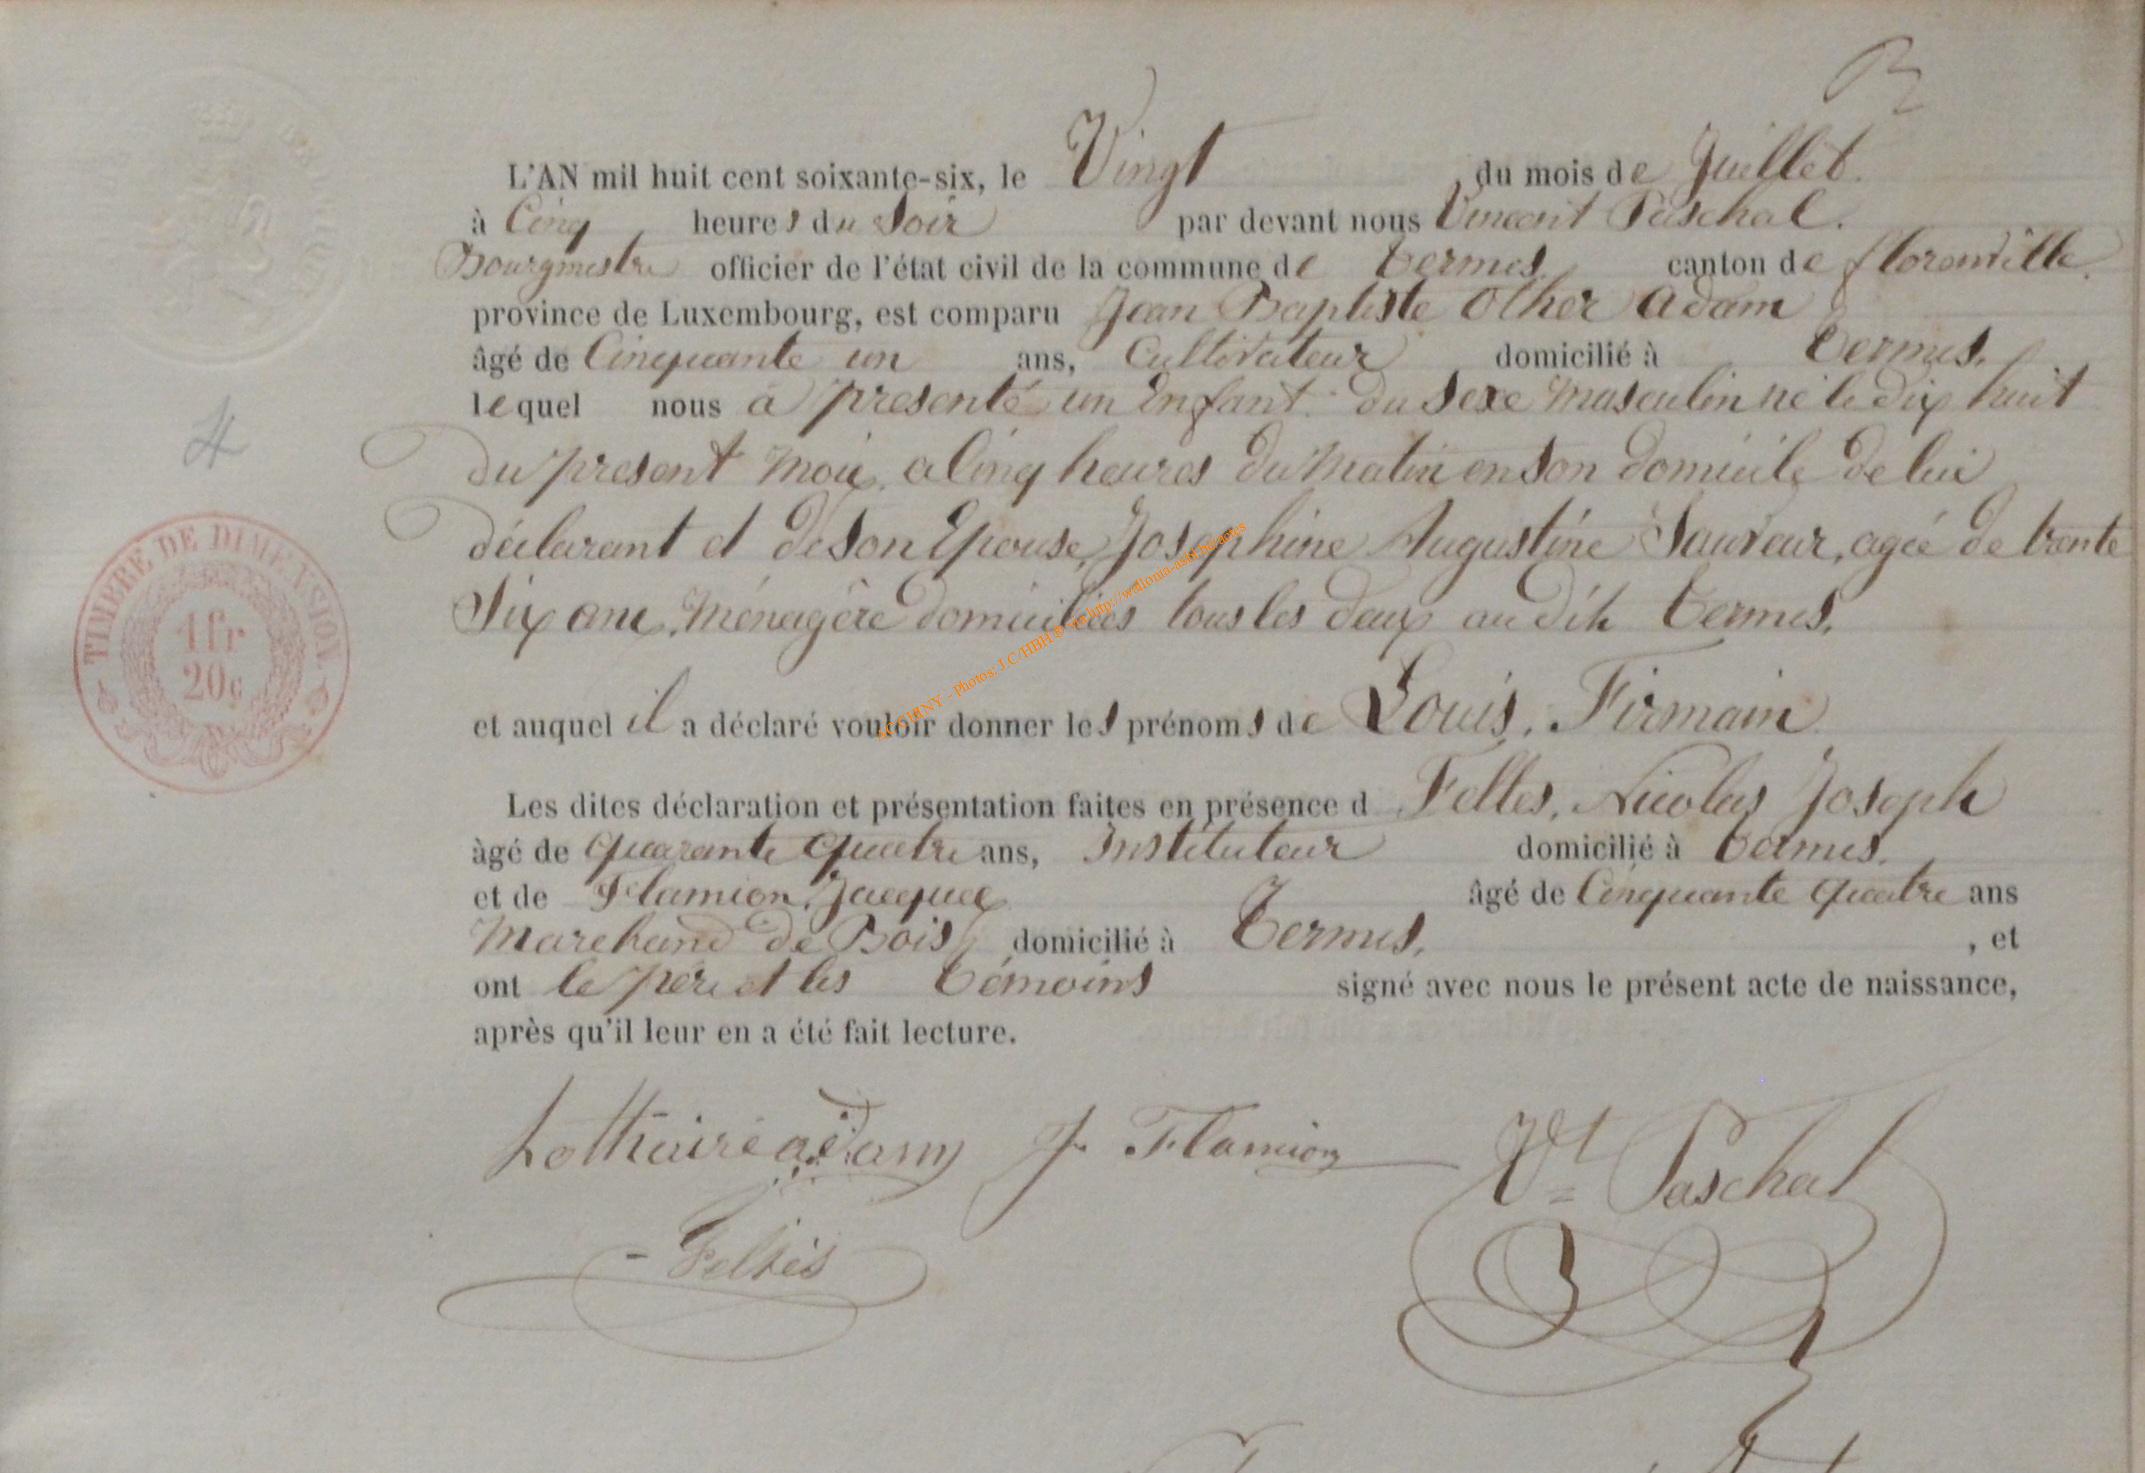 L'AN mil huit cent soixante-six, le Vingt du mois de Juillet.
à Cinq heures du Soir par devant nous Vincent Paschal.
Bourgmestre officier de l'état civil de la commune de Termes. canton de florenville.
province de Luxembourg, est comparu Jean Baptiste Other Adam
âgé de Cinquante un ans, Cultivateur domicilié à Termes.
lequel nous a présenté un Enfant du Sexe masculin né le dix huit
du present mois. a Cinq heures du Matin en son domicile de lui
déclarant et de son Epouse, Josephine Augustine Sauveur, agée de trente
Six ans, Ménagère domiciliées tous les deux au dit Termes.
et auquel il a déclaré vouloir donner les prénoms de Louis, Firmain
Les dites déclaration et présentation faites en présence d Feltes, Nicolas Joseph
âgé de quarante quatre ans, Instituteur domicilié à Termes.
et de Flamion, Jacques âgé de Cinquante quatre ans
Marchand de Bois domicilié à Termes. , et
ont le père et les témoins signé avec nous le présent acte de naissance,
après qu'il leur en a été fait lecture.
Lothaire adam J. Flamion Vt Paschal
Feltés
TIMBRE DE DIMENSION.
1 fr
20 c